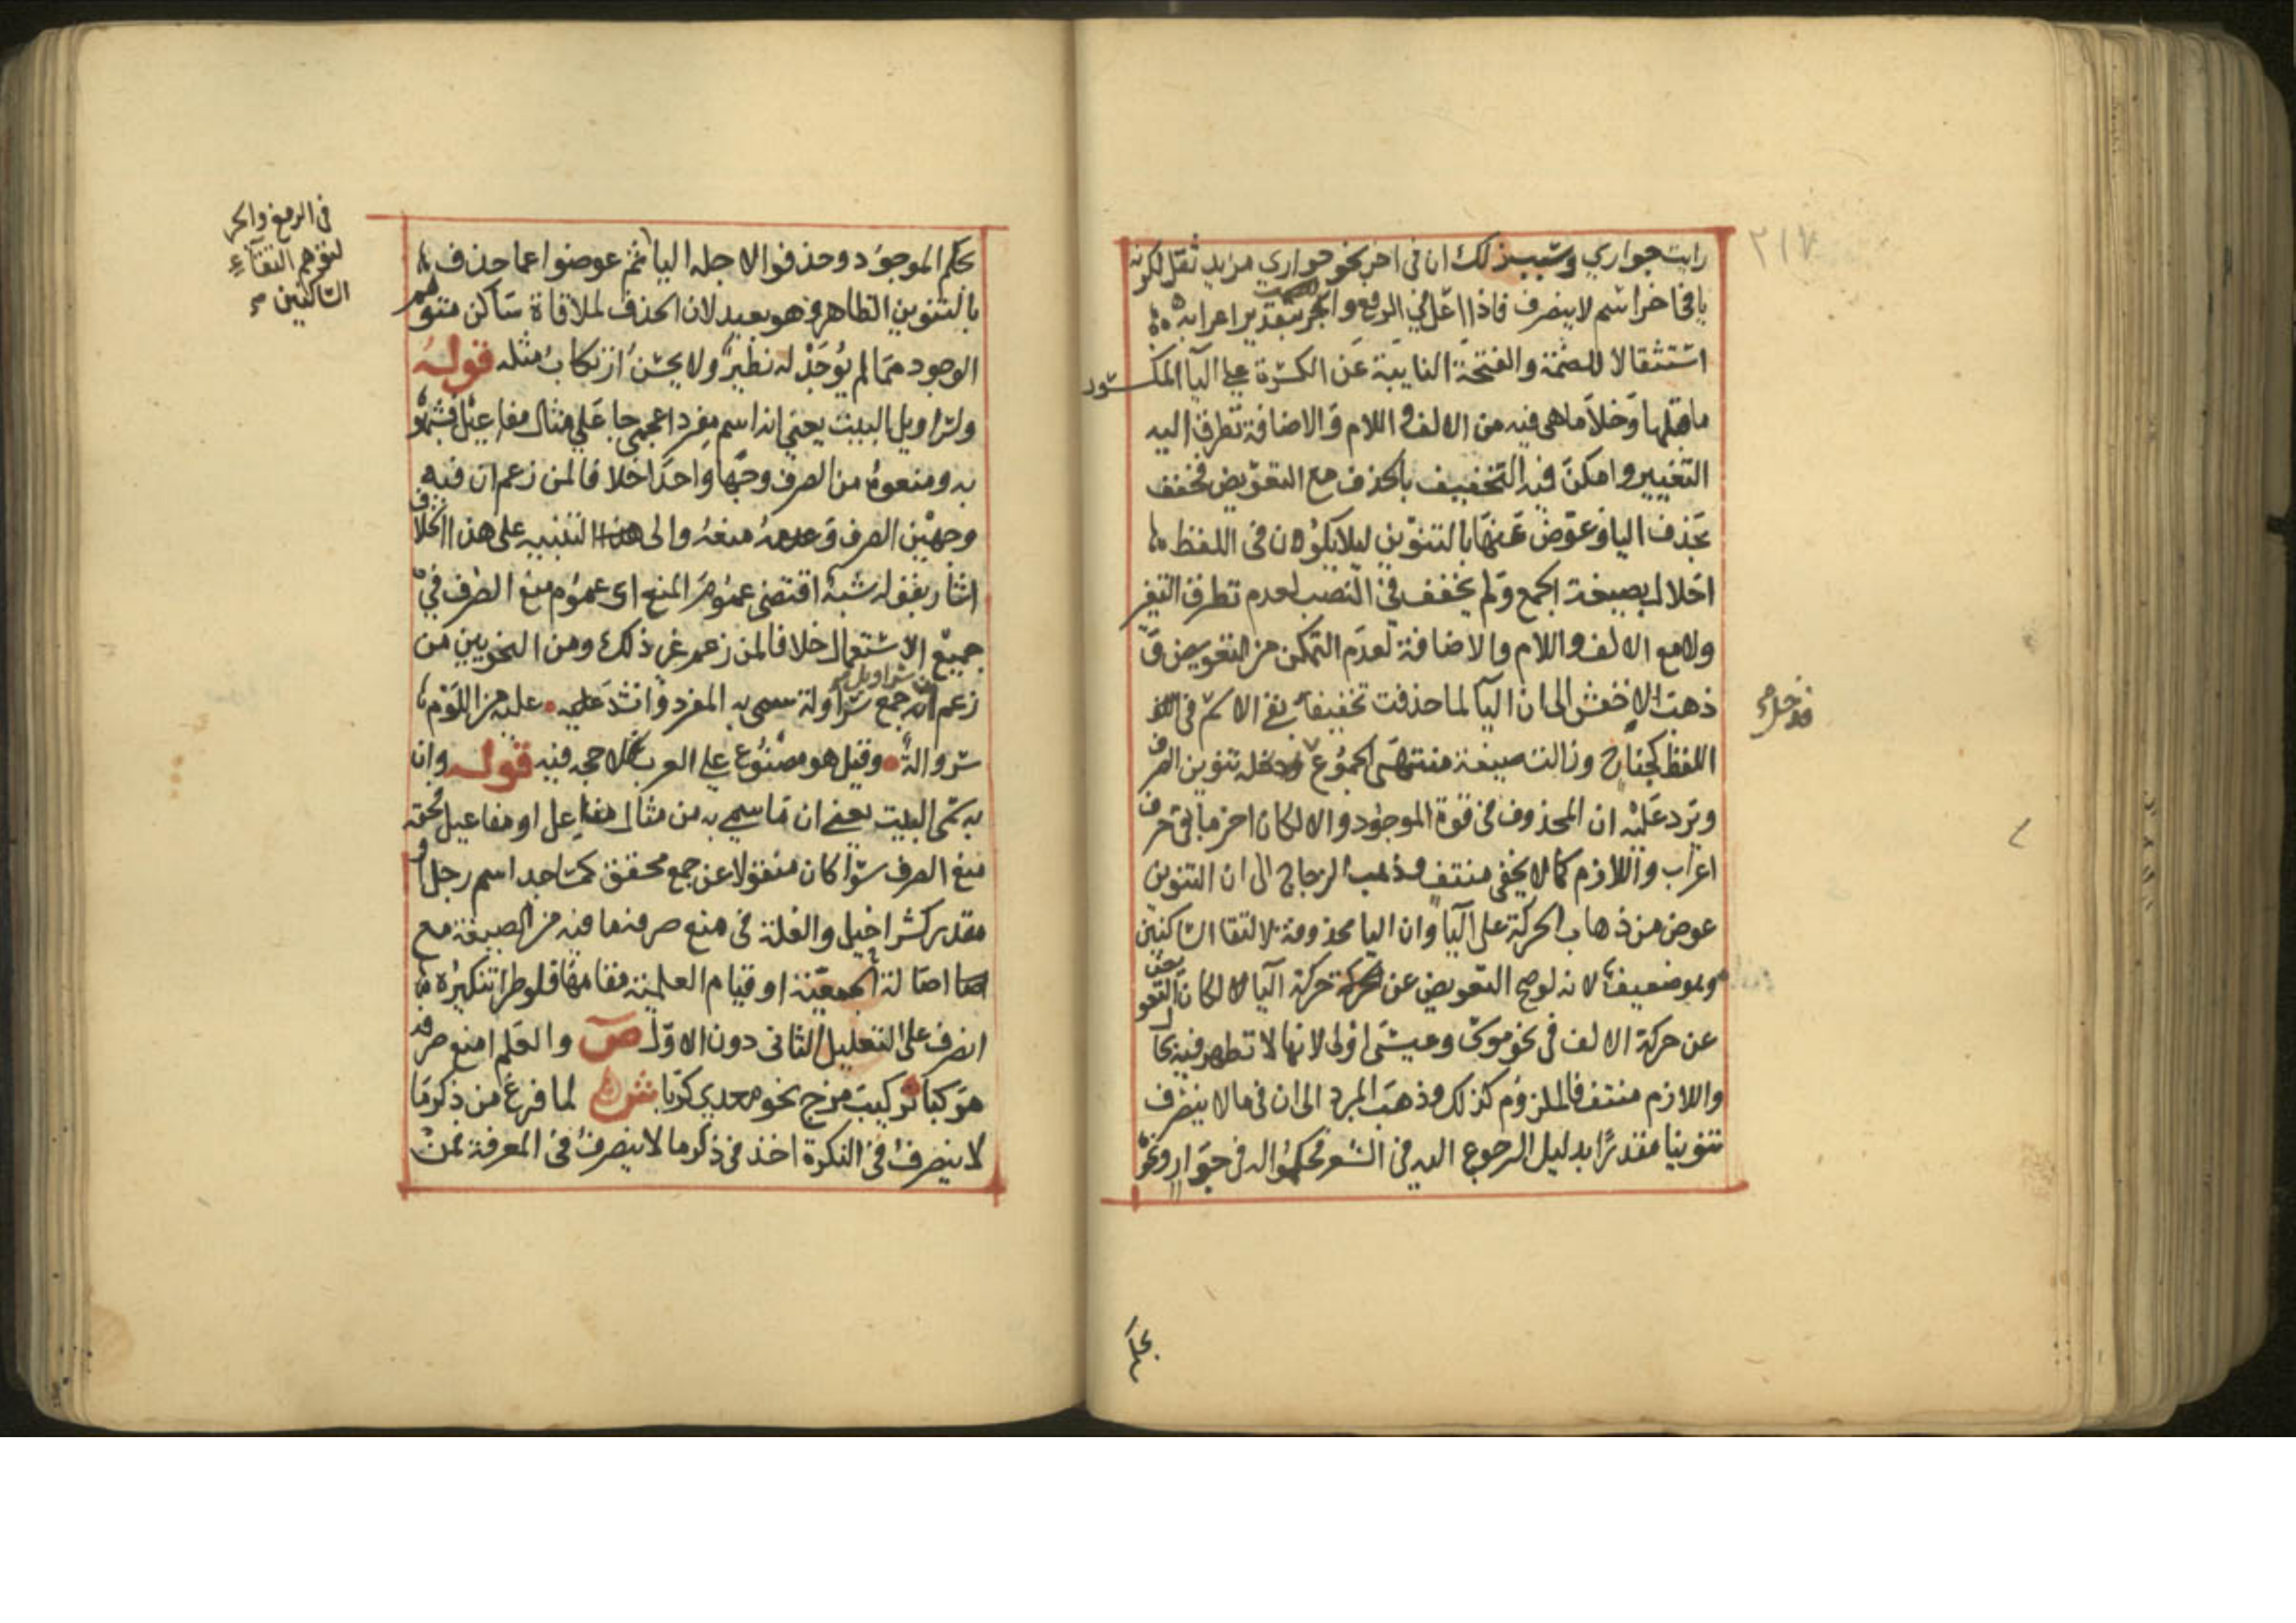 ٢١٧
رايت جواري وسبب ذلك ان في اخر نحو جواري مزيد ثقل لكونه
يا في اخر اسم لا ينصرف فاذا اعل في الرفع والجر بتقدير اعرابه
استثقالا للضمة والفتحة النايبة عن الكسرة علي اليا المكسور
ما قبلها وخلا ما هي فيه من الالف واللام والاضافة تطرق اليه
التغيير وامكن فيه التخفيف بالحذف مع التعويض فخفف
بحذف اليا وعوض عنها بالتنوين ليلا يكون في اللفظ
اخلال بصيغة الجمع ولم يخفف في النصب لعدم تطرق التغير
ولا مع الالف واللام والاضافة لعدم التمكن من التعويض و
ذهب الاخفش الى ان اليا لما حذفت تخفيفا بقي الاسم في
اللفظ كجناح وزالت صيغة منتهى الجموع فدخله تنوين الصرف
فدخله
ويرد عليه ان المحذوف في قوة الموجود والا لكان اخر ما بقي حرف
اعراب واللازم كما لا يخفى منتف وذهب الزجاج الى ان التنوين
عوض من ذهاب الحركة على اليا وان اليا محذوفة لالتقا الساكنين
وهو ضعيف لانه لو صح التعويض عن حركة اليا لكان التعويض
عن حركة الالف في نحو موسى وعيسى اولى لانها لا تظهر فيه بحال
واللازم منتف فالملزوم كذلك وذهب المبرد الى ان في ما لا ينصرف
تنوينا مقدرا بدليل الرجوع اليه في الشعر فحكموا له في جوار ونحوه
بحكم الموجود وحذفوا لاجله اليا ثم عوضوا عما حذف
في الرفع والجر
لتوهم التقآء
الساكنين
بالتنوين الظاهر وهو بعيد لان الحذف لملاقاة ساكن متوهم
الوجود مما لم يوجد له نظير ولا يحسن ارتكاب مثله قوله
ولسراويل البيت يعني انه اسم مفرد اعجمي جا علي مثال مفاعيل فشبهوه
به ومنعوه من الصرف وجها واحدا خلافا لمن زعم ان فيه
وجهين الصرف وعدمه منعه والى التنبيه على هذا الخلاف
اشار بقوله شبه اقتضى عموم المنع اي عموم منع الصرف في
جميع الاستعمال خلافا لمن زعم غير ذلك ومن النحويين من
زعم ان سراويل جمع سروالة سمي به المفرد وانشد عليه عليه من اللؤم
سروالة وقيل هو مصنوع علي العرب فلا حجة فيه قوله وان
به سمي البيت يعني ان ما سمي به من مثال مفاعل او مفاعيل فحقه
منع الصرف سوا كان منقولا عن جمع محقق كمساجد اسم رجل او
مقدر كشراحيل والعلة في منع صرفه ما فيه من الصيغة مع
اصالة الجمعية او قيام العلمية مقامها فلو طرا تنكيره
انصرف على التعليل الثاني دون الاول ص والعلم امنع صرفه
مركبا تركيب مزج نحو معدي كربا ش لما فرغ من ذكر ما
لا ينصرف في النكرة اخذ في ذكر ما لا ينصرف في المعرفة فمن